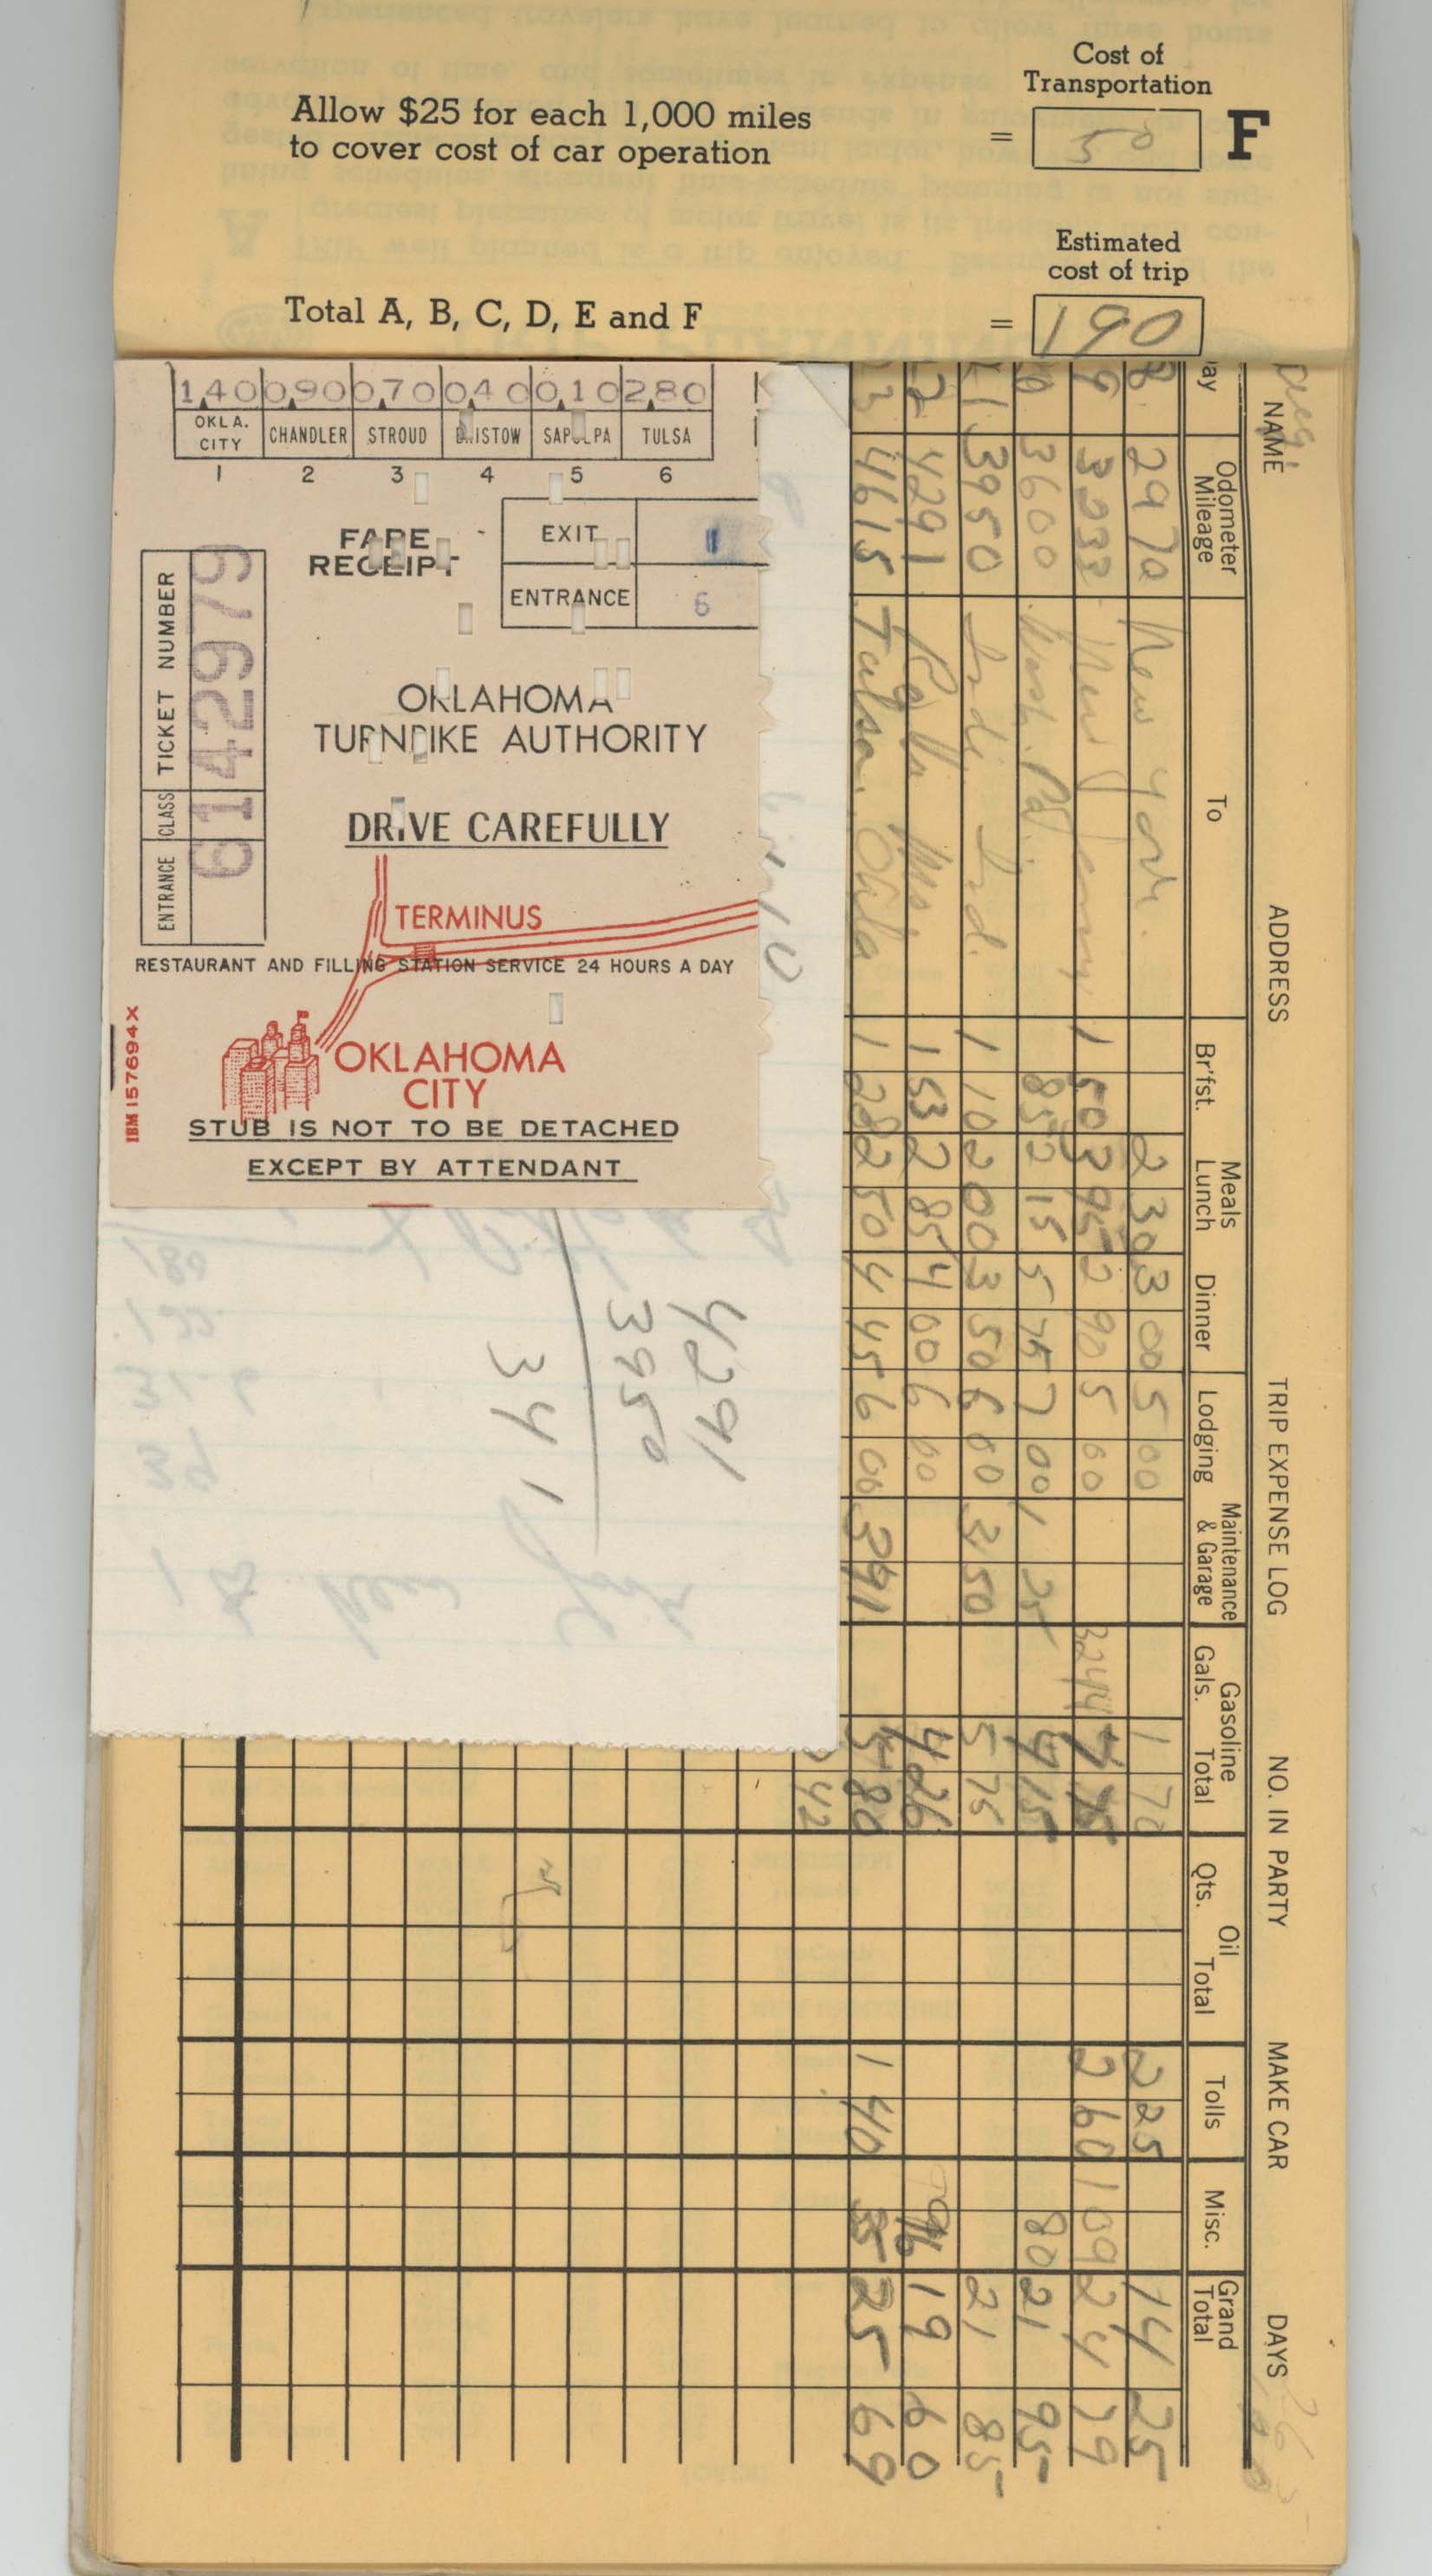 Cost of
Transportation
Allow $25 for each 1,000 miles
to cover cost of car operation
= 50 F
Estimated
cost of trip
Total A, B, C, D, E and F
= 190
1.40 0.90 0.70 0.40 0.10 2.80
OKLA. CITY CHANDLER STROUD BRISTOW SAPULPA TULSA
1 2 3 4 5 6
FARE
RECEIPT
EXIT 1
ENTRANCE 6
ENTRANCE CLASS TICKET NUMBER
6142979
OKLAHOMA
TURNPIKE AUTHORITY
DRIVE CAREFULLY
TERMINUS
RESTAURANT AND FILLING STATION SERVICE 24 HOURS A DAY
OKLAHOMA
CITY
STUB IS NOT TO BE DETACHED
EXCEPT BY ATTENDANT
IBM I57694X
4291
3950
341
TRIP EXPENSE LOG
NAME ADDRESS NO. IN PARTY MAKE CAR DAYS
Day Odometer Mileage To Meals Br'fst. Lunch Dinner Lodging Maintenance & Garage Gasoline Gals. Total Oil Qts. Total Tolls Misc. Grand Total
8 2970 New York 2 30 3 00 5 00 1 70 2 25 14 25
9 3233 New Jersey 1 50 3 95 2 90 5 00 2 60 1 09 24 79
10 3600 Wash. Pa. 85 2 15 5 75 7 00 1 25 4 15 80 21 95
11 3950 Indi. Ind. 1 10 2 00 3 50 6 00 3 50 5 75 21 85
12 4291 Rolla Mo. 1 53 2 85 4 00 6 00 4 26 96 19 60
13 4615 Tulsa. Okla 1 28 2 50 4 45 6 00 3 91 5 80 1 40 35 25 69
42